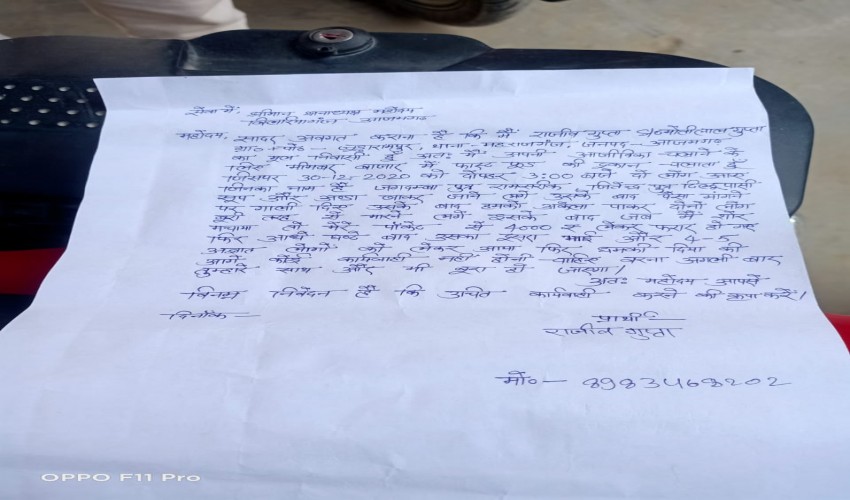 सेवा में, श्रीमान थानाध्यक्ष महोदय
आजमगढ़
महोदय, सादर अवगत कराना है कि मैं राजीव गुप्ता S/O मोतीलाल गुप्ता
ग्रा०+पो०- थाना- महराजगंज, जनपद- आजमगढ़
का मूल निवासी हूँ अतः मैं अपनी आजीविका चलाने के
लिए बाजार में फास्ट फूड की दुकान चलाता हूँ
जिसपर 30-12-2020 को दोपहर 3:00 बजे दो लोग आए
जिनका नाम है जगदम्बा पुत्र जितेन्द्र पुत्र
सूप और अण्डा खाकर जाने लगे उसके बाद पैसा मांगने
पर गाली दिए उसके बाद हमको अकेला पाकर दोनों लोग
बुरी तरह से मारने लगे इसके बाद जब मैं शोर
मचाया तो मेरे पॉकेट से 4000 रु लेकर फरार हो गए
फिर आधी घण्टे बाद उसका दूसरा भाई और 4-5
अज्ञात लोगों को लेकर आया फिर धमकी दिया की
आगे कोई कार्यवाही नहीं होनी चाहिए वरना अगली बार
तुम्हारे साथ और भी बुरा हो जाएगा।
अतः महोदय आपसे
विनम्र निवेदन है कि उचित कार्यवाही करने की कृपा करें।
दिनाँक -
प्रार्थी
राजीव गुप्ता
मो०- 8983468202
OPPO F11 Pro